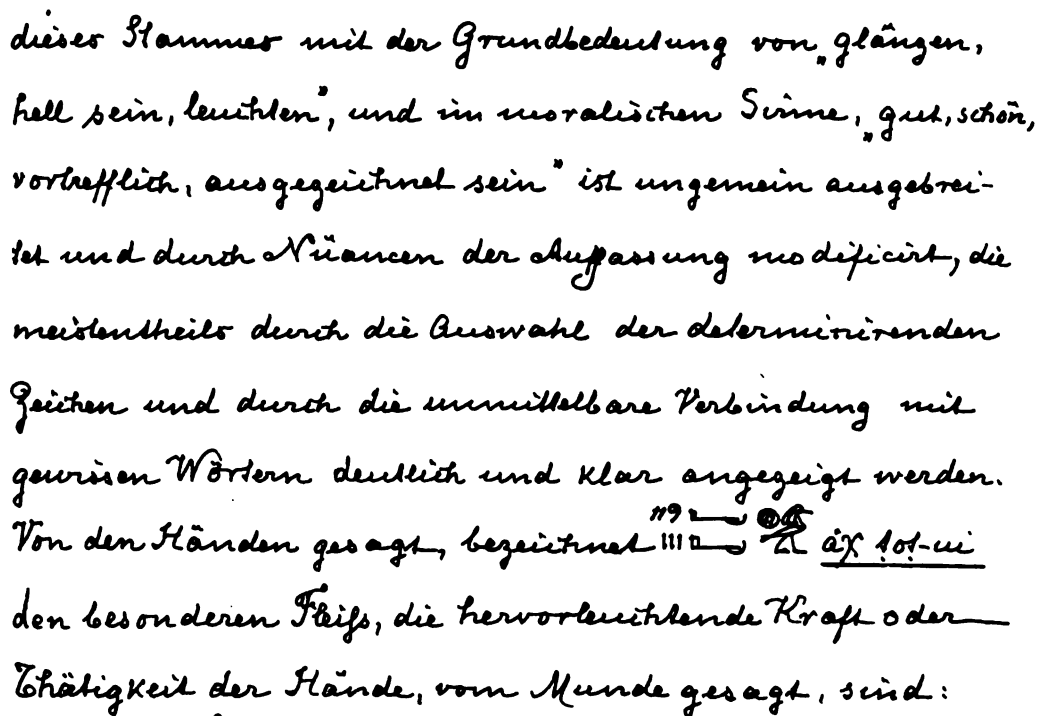 dieses Stammes mit der Grundbedeutung von „glänzen,
hell sein, leuchten”, und im moralischen Sinne, „gut, schön,
vortrefflich, ausgezeichnet sein” ist ungemein ausgebrei-
tet und durch Nüancen der Auffassung modificirt, die
meistentheils durch die Auswahl der determinirenden
Zeichen und durch die unmittelbare Verbindung mit
gewissen Wörtern deutlich und klar angezeigt werden.
Von den Händen gesagt, bezeichnet
den besonderen Fleiſs, die hervorleuchtende Kraft oder
Thätigkeit der Hände, vom Munde gesagt, sind: